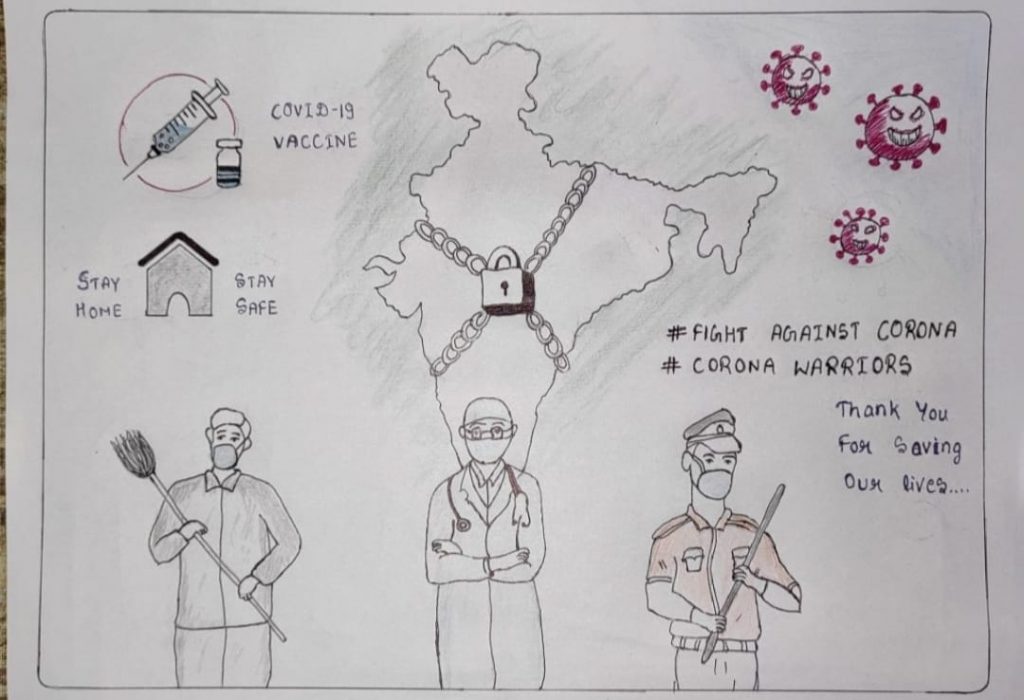 COVID-19
VACCINE
STAY
HOME
STAY
SAFE
#FIGHT AGAINST CORONA
# CORONA WARRIORS
Thank You
For Saving
Our lives....